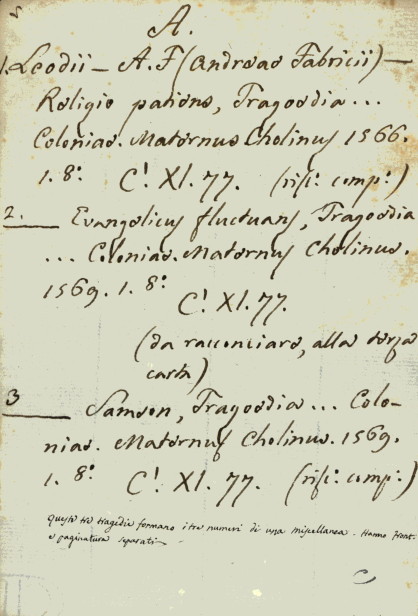 A.
1. Leodii — A. F. (Andreae Fabricii) —
Religio patiens, Tragoedia ...
Coloniae. Maternus Cholinus 1566.
1. 8.º C¹. XI. 77. (rifˢ: comp:)
2. Evangelicus fluctuans, Tragoedia
... Coloniae. Maternus Cholinus.
1569. 1. 8º
C¹ XI. 77.
(da racconciare, alla terza
carta)
3 Samson, Tragoedia ... Colo-
niae. Maternus Cholinus. 1569.
1. 8º C¹. XI. 77. (rifˢ: comp:)
Queste tre tragedie formano i tre numeri di una miscellanea. Hanno front.
e paginatura separati —